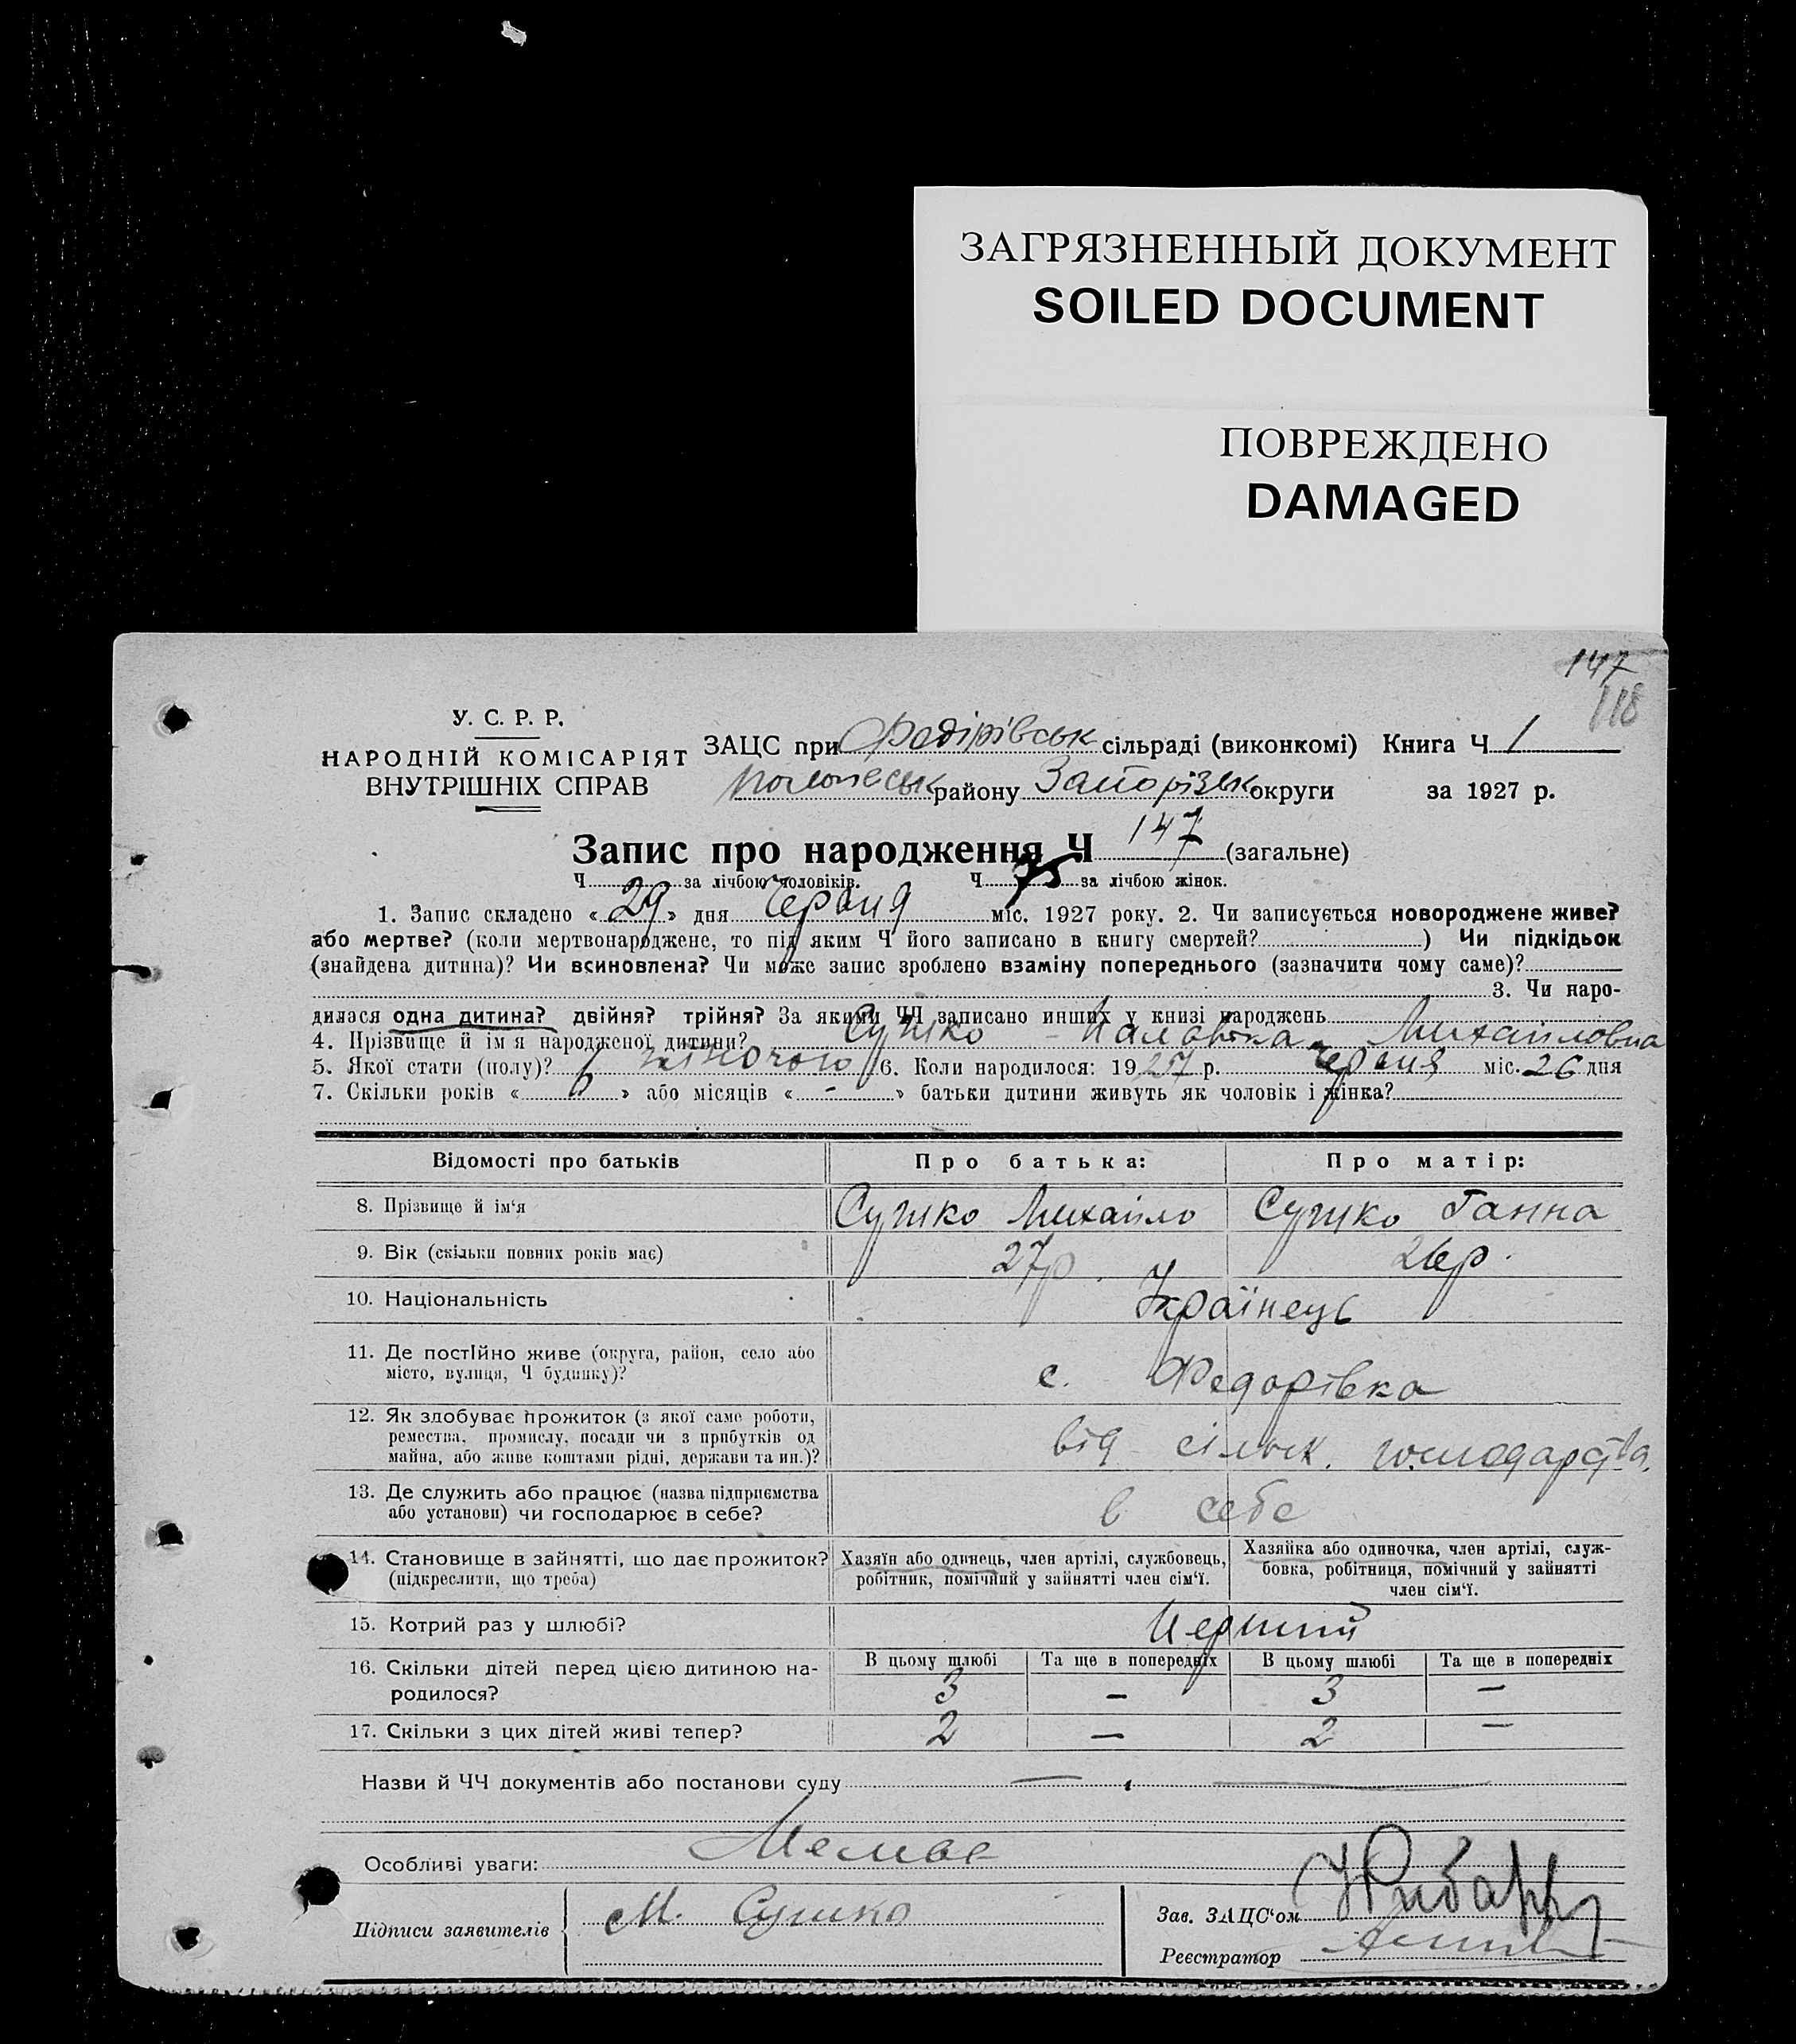 ЗАГРЯЗНЕННЫЙ ДОКУМЕНТ
SOILED DOCUMENT
ПОВРЕЖДЕНО
DAMAGED
147
118
У. С. Р. Р.
НАРОДНІЙ КОМІСАРІЯТ
ВНУТРІШНІХ СПРАВ
ЗАЦС при Федірівськ сільраді (виконкомі) Книга Ч 1
району Запорізьк округи за 1927 р.
Запис про народження Ч 147 (загальне)
Ч. за лічбою чоловіків. Ч. 75 за лічбою жінок.
1. Запис складено « 29 » дня Червня міс. 1927 року. 2. Чи записується новороджене живе?
або мертве? (коли мертвонароджене, то під яким Ч його записано в книгу смертей? ) Чи підкідьок
(знайдена дитина)? Чи всиновлена? Чи може запис зроблено взаміну попереднього (зазначити чому саме)?
3. Чи наро-
дилася одна дитина? двійня? трійня? За якими ЧЧ записано инших у книзі народжень
4. Прізвище й ім'я народженої дитини? Сушко Михайловна
5. Якої стати (полу)? жіночого 6. Коли народилося: 1927 р. червня міс. 26 дня
7. Скільки років « 6 » або місяців « - » батьки дитини живуть як чоловік і жінка?
Відомості про батьків Про батька: Про матір:
8. Прізвище й ім'я Сушко Михайло Сушко Ганна
9. Вік (скільки повних років має) 27р. 26р.
10. Національність Українець
11. Де постійно живе (округа, район, село або
місто, вулиця, Ч будинку)? с. Федорівка
12. Як здобуває прожиток (з якої саме роботи,
ремества, промислу, посади чи з прибутків од
майна, або живе коштами рідні, держави та ин.)? від сільськ. господарства.
13. Де служить або працює (назва підприємства
або установи) чи господарює в себе? в себе
14. Становище в зайнятті, що дає прожиток?
(підкреслити, що треба)
Хазяїн або одинець, член артілі, службовець,
робітник, помічний у зайнятті член сім'ї.
Хазяйка або одиночка, член артілі, служ-
бовка, робітниця, помічний у зайнятті
член сім'ї.
15. Котрий раз у шлюбі? Перший
16. Скільки дітей перед цією дитиною на-
родилося?
В цьому шлюбі Та ще в попередніх В цьому шлюбі Та ще в попередніх
3 — 3 —
17. Скільки з цих дітей живі тепер? 2 — 2 —
Назви й ЧЧ документів або постанови суду
Особливі уваги: Немає
Підписи заявителів М. Сушко
Зав. ЗАЦС'ом
Реєстратор